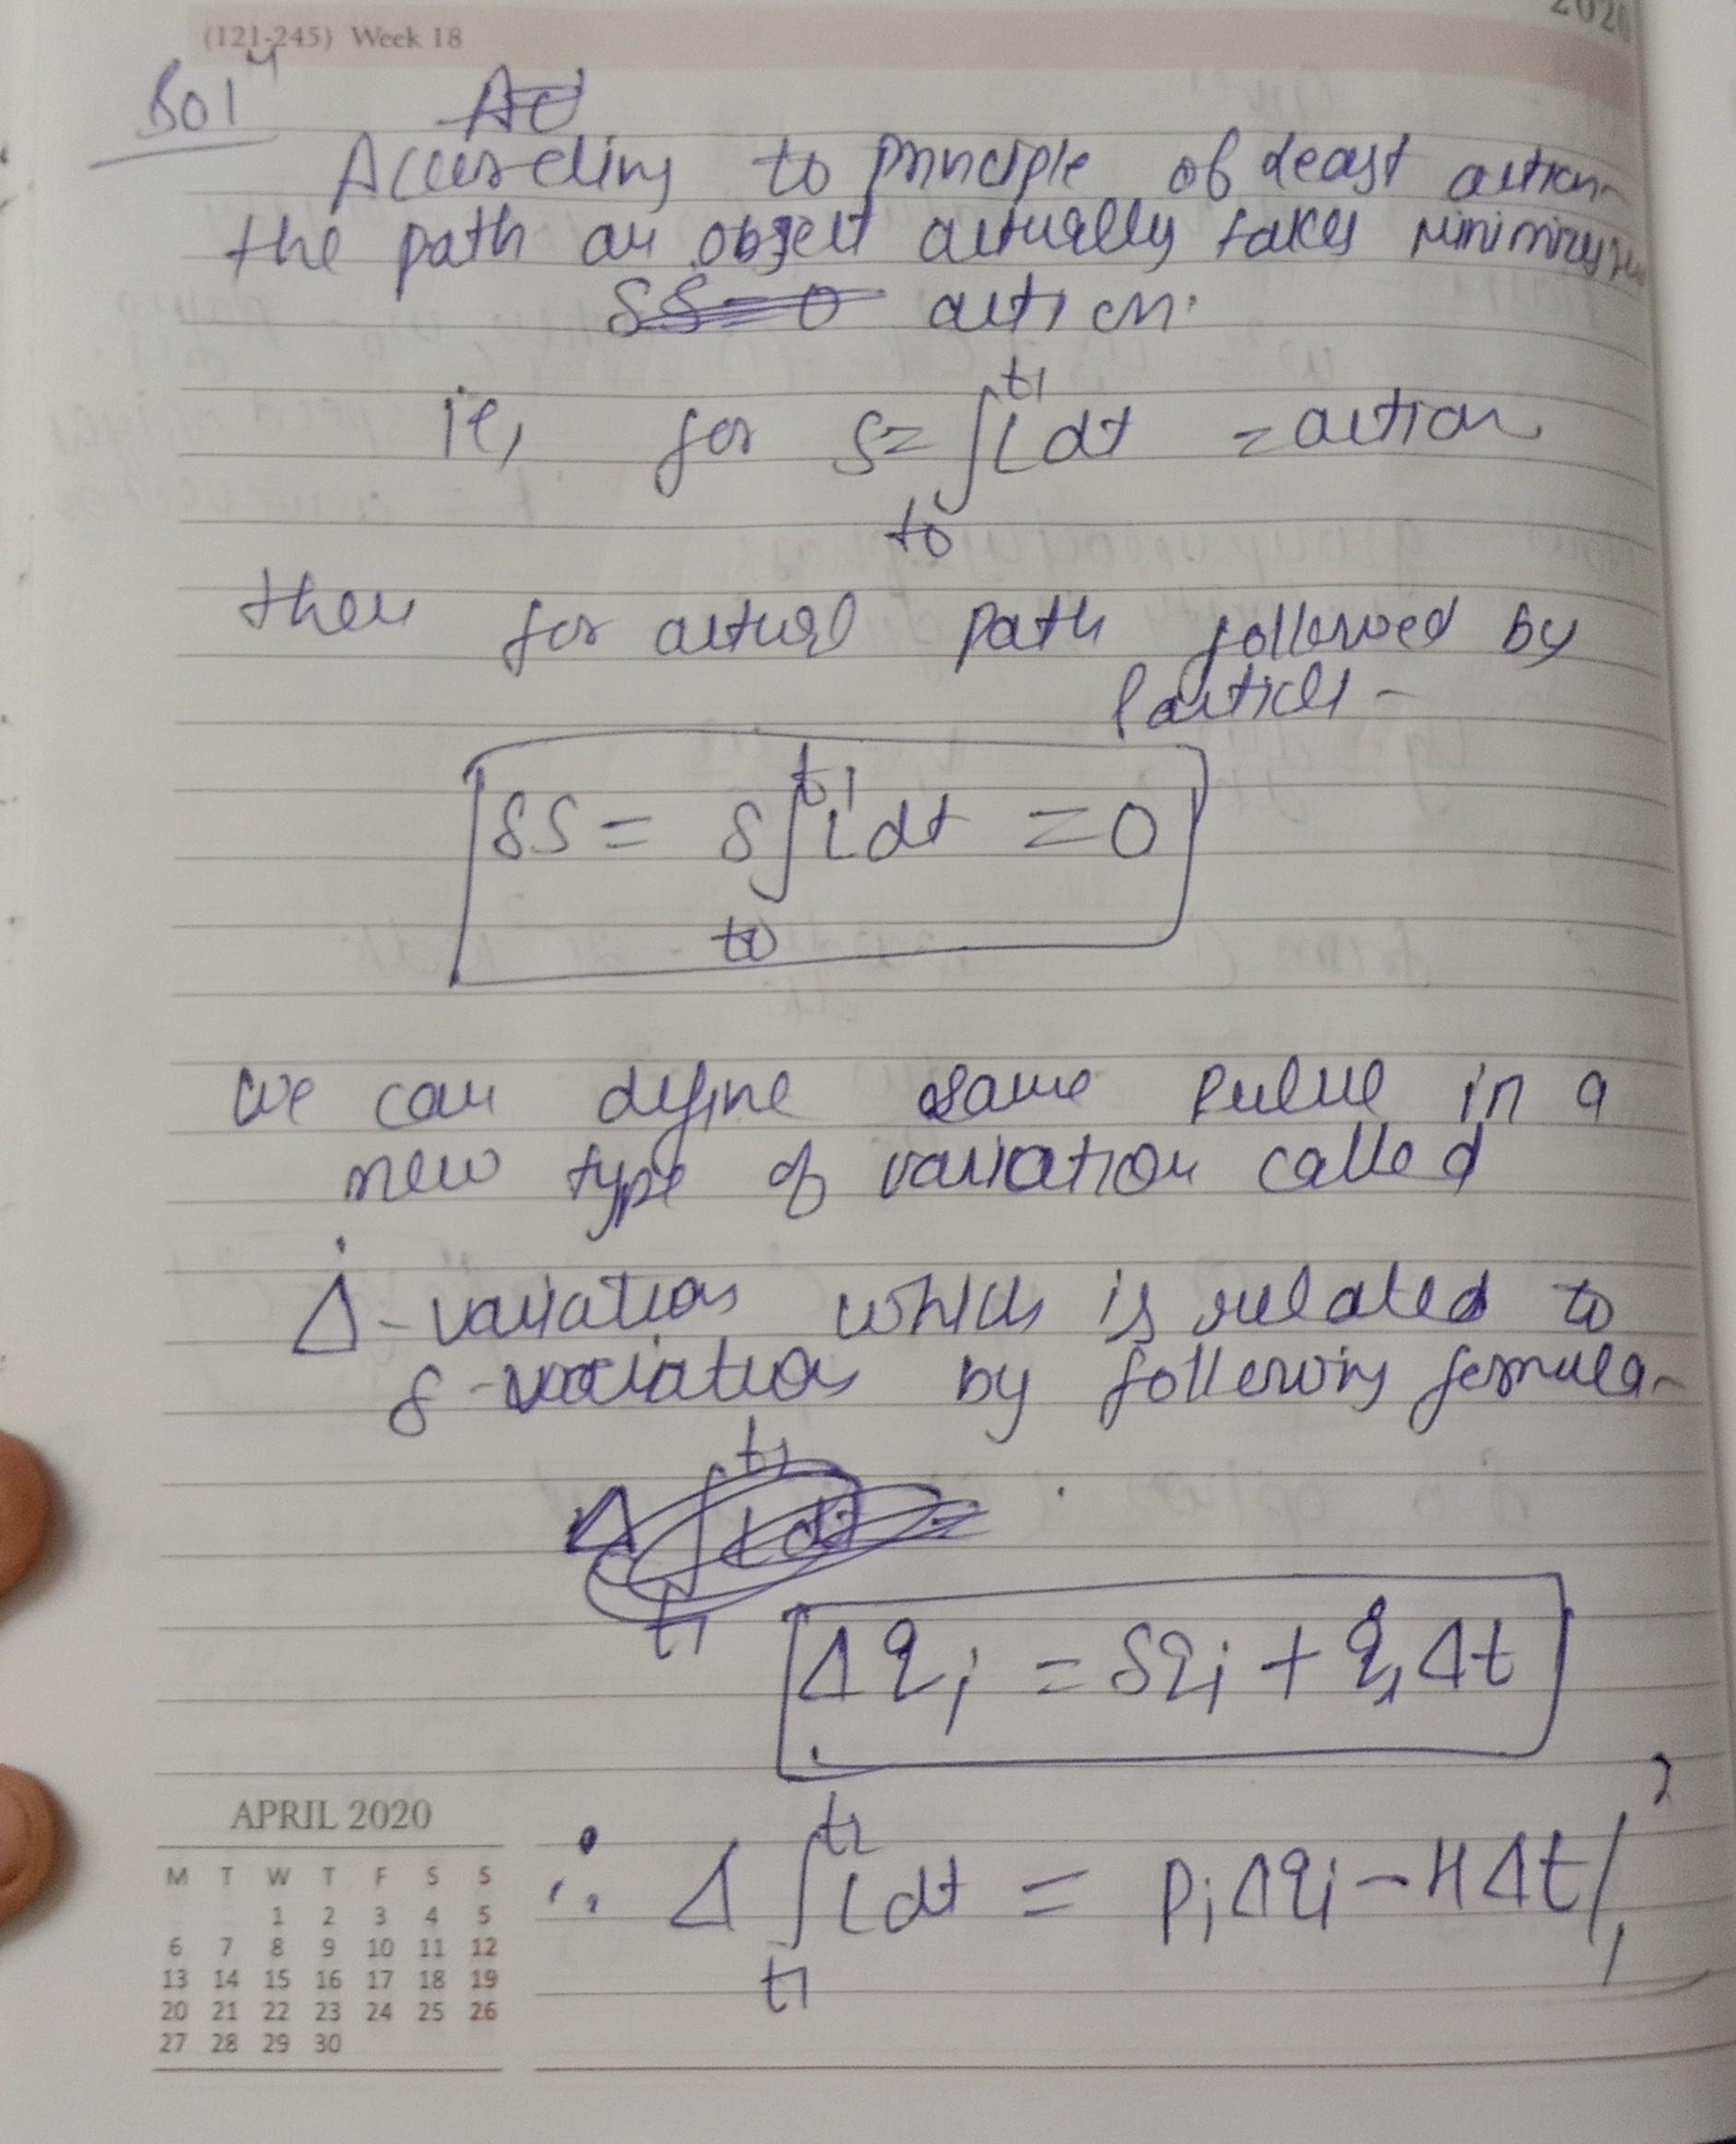 2020
(121-245) Week 18
Sol^n
According to principle of least action
the path an object actually takes minimizes the
action.
ie, for S = ∫_{t0}^{t1} L dt = action
then for actual path followed by
particle -
δS = δ∫_{t0}^{t1} L dt = 0
we can define same rule in a
new type of variation called
Δ-variation which is related to
δ-variation by following formula-
Δq_i = δq_i + q̇_i Δt
∴ Δ ∫_{t1}^{t2} L dt = p_i Δq_i - H Δt |_1^2
APRIL 2020
M T W T F S S
1 2 3 4 5
6 7 8 9 10 11 12
13 14 15 16 17 18 19
20 21 22 23 24 25 26
27 28 29 30